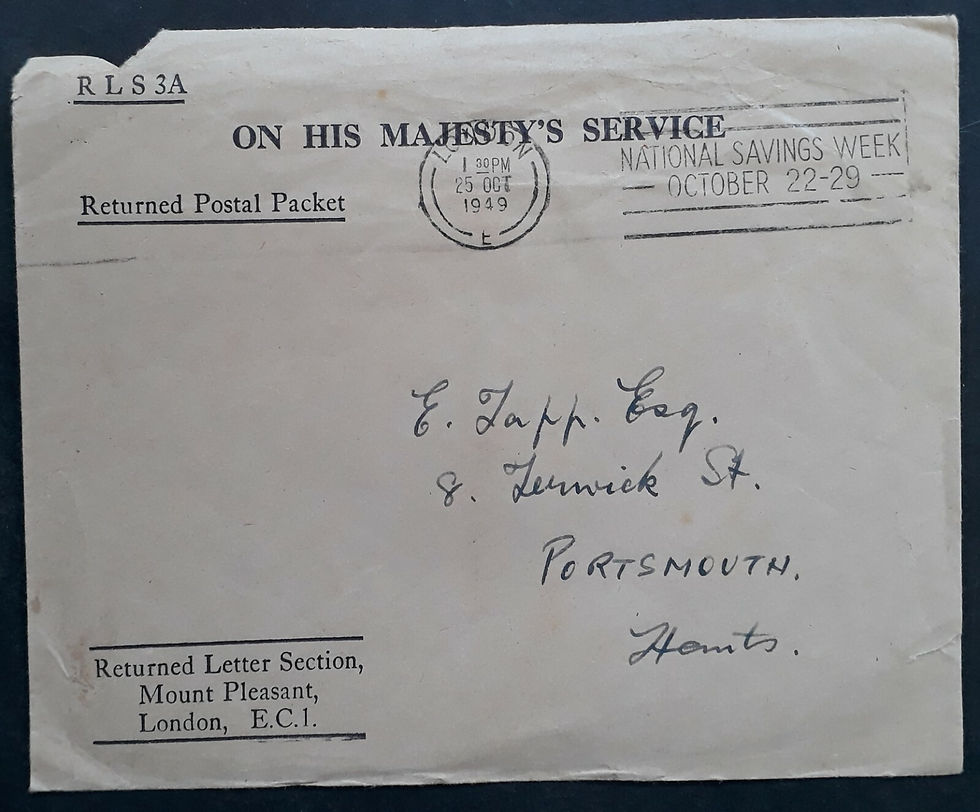 R L S 3A
ON HIS MAJESTY'S SERVICE
LONDON
1 30PM
25 OCT
1949
E
NATIONAL SAVINGS WEEK
— OCTOBER 22-29 —
Returned Postal Packet
E. Tapp. Esq.
8. St.
PORTSMOUTH.
Hants.
Returned Letter Section,
Mount Pleasant,
London, E.C.1.